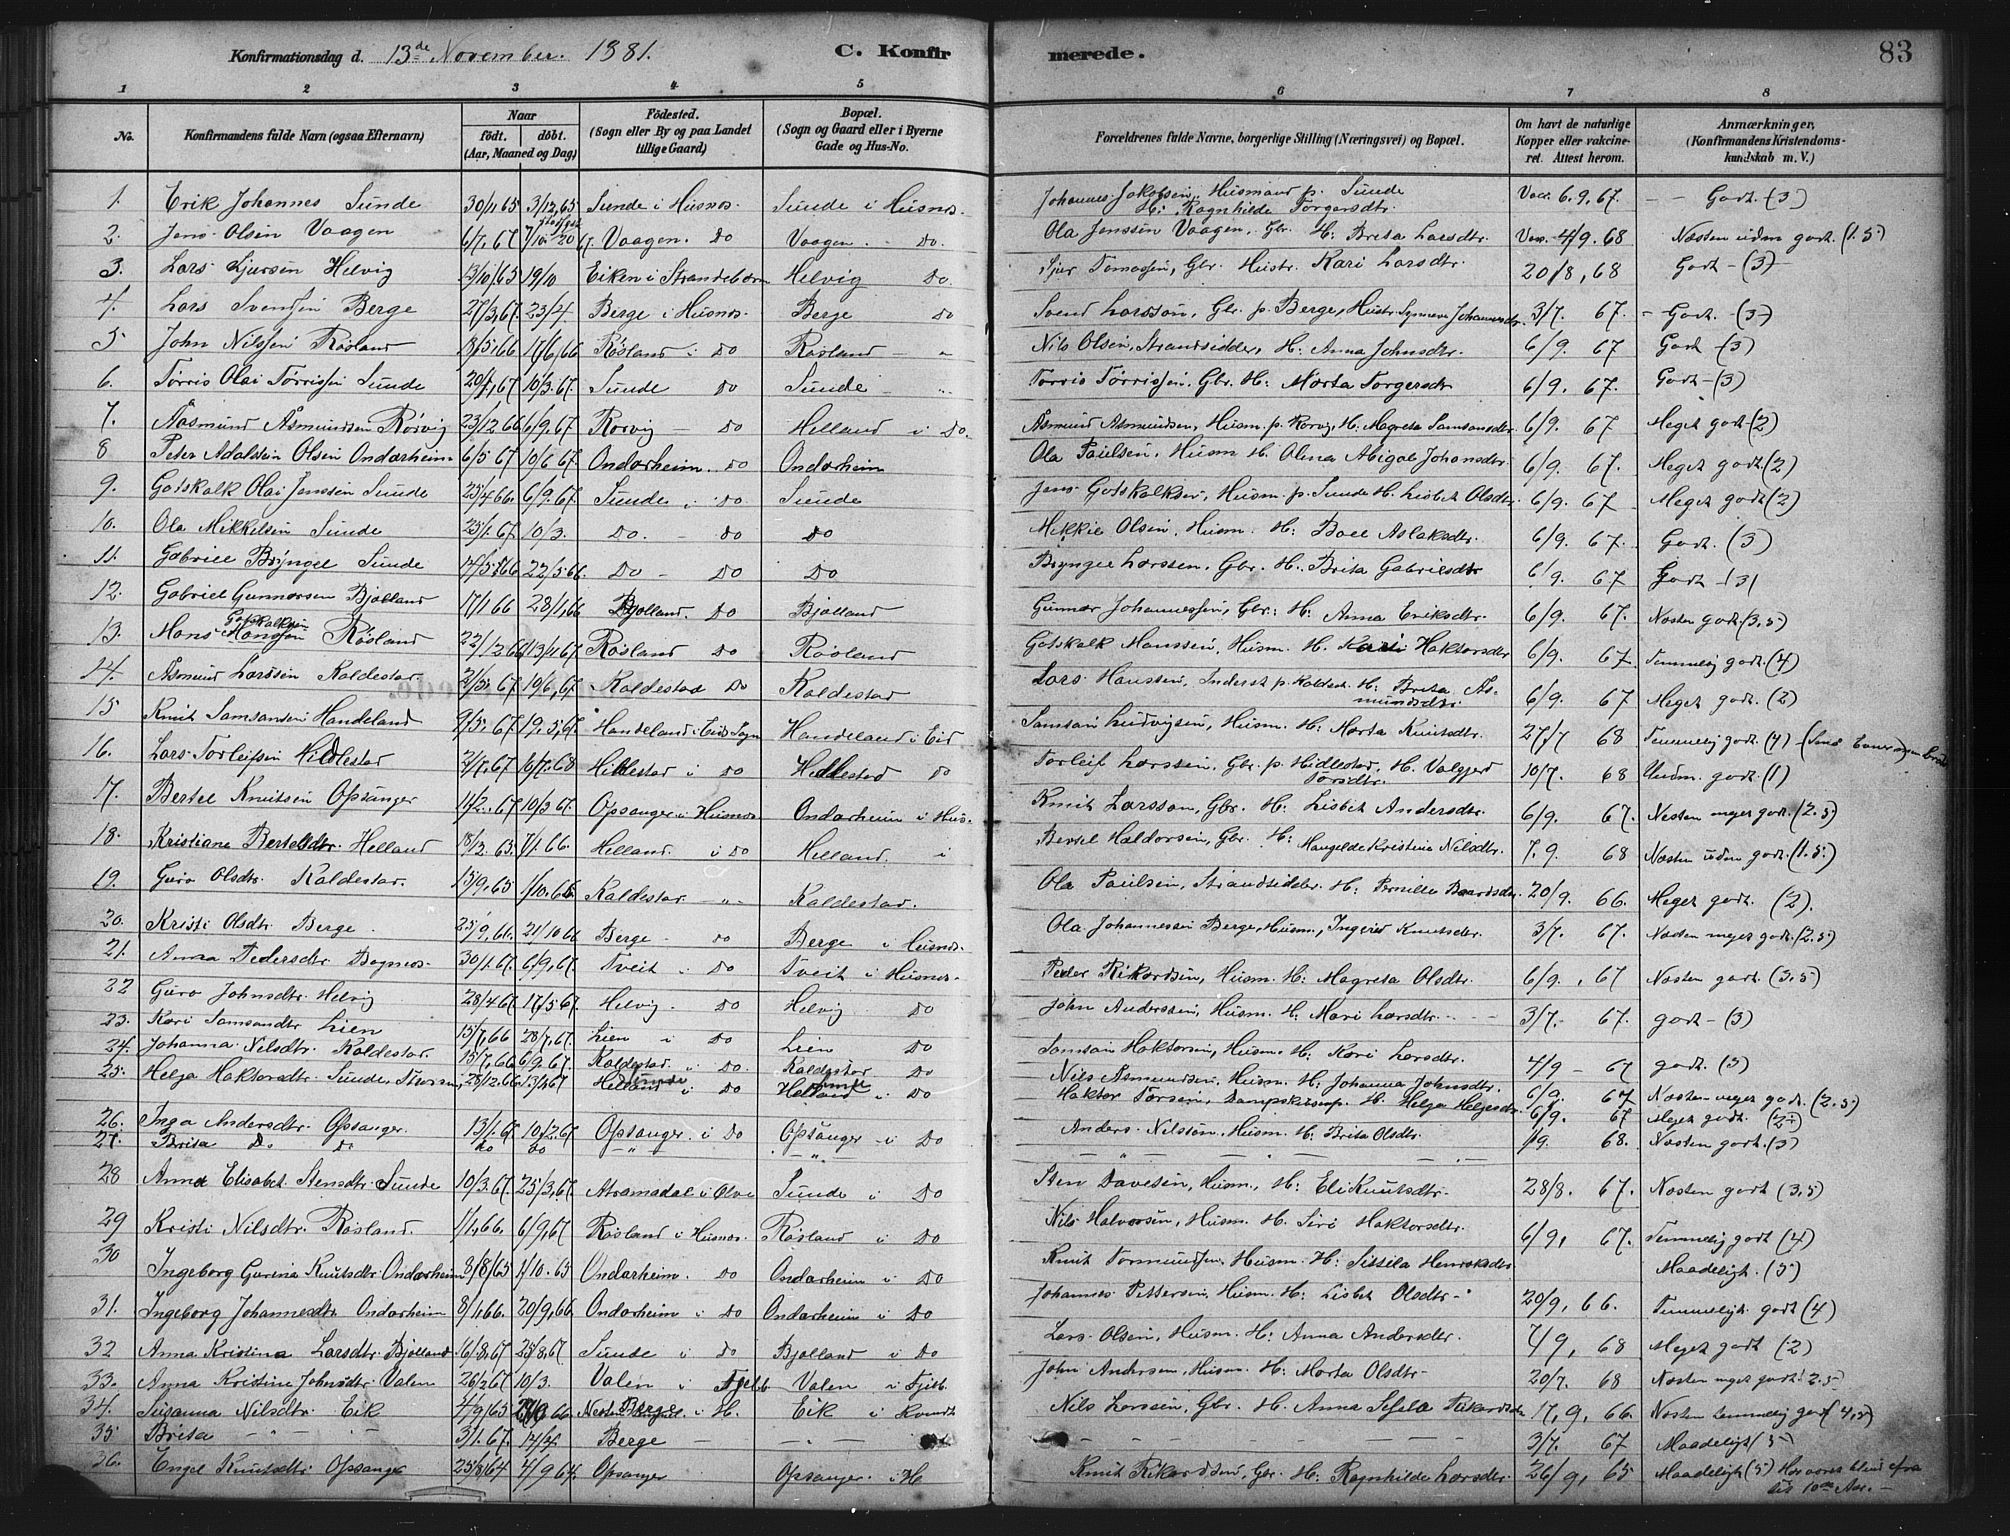 Konfirmationsdag d. 13de November. 1881. C. Konfirmerede. 83
1 2 3 4 5 6 7 8
No. Konfirmandens fulde Navn (ogsaa Efternavn) Naar födt. döbt. (Aar, Maaned og Dag) Födested. (Sogn eller By og paa Landet tillige Gaard) Bopæl. (Sogn og Gaard eller i Byerne Gade og Hus-No. Forældrenes fulde Navne, borgerlige Stilling (Næringsvei) og Bopæl. Om havt de naturlige Kopper eller vakcineret. Attest herom. Anmærkninger, (Konfirmandens Kristendomskundskab m. V.)
1. Erik Johannes Sunde 30/11 65 3/12,65 Sunde i Husnes. Sunde i Husnes. Johannes Jakobsen, Husmand p. Sunde H: Ragnhilde Torgersdtr. Vacc. 6.9.67. Godt. (3)
2. Jens Olsen Vaagen 6/7.67 Vaagen. Do Vaagen. Do. Ola Jenssen Vaagen, Gbr. H: Brita Larsdtr. Vac. 4/9.68 Næsten uden godt. (1.5)
3. Lars Sjursen Helvig 13/10,65 19/10 Eiken i Strandebarm Helvig Do. Sjur Tomassen, Gbr. Hustr. Kari Larsdtr. 20/8,68 Godt - (3)
4. Lars Svendsen Berge 27/3,67. 23/4 Berge i Husnes. Berge Do Svend Larsson, Gbr. p. Berge, Hustr. Synneva Johannesdtr. 3/7. 67. Godt. (3)
5 John Nilssen Røsland 18/5,66 17/6,66 Røsland i Do Røsland Nils Olsen, Strandsidder, H: Anna Johnsdtr. 6/9. 67 Godt - (3)
6. Torris Olai Torrissen Sunde 20/1,67 10/3.67. Sunde Do Sunde Torris Torrissen. Gbr. H: Marta Torgersdtr 6/9. 67. Godt - (3)
7. Aasmund Asmundsen Rørvig 23/12 66 6/9.67 Rørvig Do Helland i Do. Asmund Asmundsen, Husm. p. Rørvig, H. Magreta Samsonsdtr 6/9. 67 Meget godt (2)
8 Peter Adolstein Olsen Ondarheim 6/5 67 10/6 67 Ondarheim. Do Ondarheim Ola Paulsen, Husm H. Olina Abigal Johansdtr 6/9. 67. Meget godt. (2)
9. Gotskalk Olai Jenssen Sunde 23/4 66. 6/9.67. Sunde i Do Sunde Jens Gotskalksen, Husm. p. Sunde H. Lisbet Olsdtr. 6/9. 67 Meget godt (2)
10. Ola Mikkelsen Sunde 25/1.67. 10/3. Do. Do Do Mikkel Olsen, Husm. H: Boel Aslaksdtr. 6/9. 67. Godt. (3)
11. Gabriel Brynget Sunde 14/5 1866 22/5 66. Do Do Do Bryngel Larssen, Gbr. H. Brita Gabrielsdtr 6/9. 67 Godt (3)
12. Gabriel Gunnarsen Bjelland 17/1 66 28/1,66 Bjelland. Do Bjelland Gunnar Johannessen, Gbr: H: Anna Eriksdtr. 6/9. 67. Næsten godt. (3,5)
13. Mons Gotskalksen Monssen Røsland 22/12 66 13/4,67. Røsland Do Røsland Gotskalk Monssen, Husm. H. Kari Haktorsdtr 6/9. 67. Temmelig godt. (4)
14. Asmund Larssen Kaldestad 2/5. 67. 10/6,67. Kaldestad Do Kaldestad Lars Hanssen, Inderst p. Kaldest. H: Brita Asmundsdtr. 6/9. 67 Meget godt. (2)
15 Knut Samsonsen Handeland 9/5, 67. 19.5,67. Handeland i Eids Sogn Handeland i Eid Samson Ludvigsen, Husm. H: Marta Knutsdtr. 27/7 68 Temmelig godt. (4)
16. Lars Torleifsen Hidlestad 2/7,67 6/7.68 Hidlestad i Do Hidlestad Do Torleif Larssen, Gbr. p. Hidlestad, H. Valgjerd Torsdtr. 10/7. 68 Uudm. godt. (1)
17. Bertel Knutsen Opsanger 11/2.67. 10/3 67. Opsanger i Husnes Ondarheim i Hus. Knut Larsson, Gbr. H: Lisbet Andersdtr. 6/9. 67. Næsten meget godt. (2.5)
18. Kristiane Bertelsdtr. Helland 18/12. 65. 7/1. 66. Helland. i Do Helland. i Bertel Haldorsen, Gbr. H: Mangelde Kristina Nilsdtr. 7.9. 68 Næsten uden godt. (1.5.)
19. Guro Olsdtr. Kaldestad. 15/9,65 1/10,65 Kaldestad. Kaldestad. Ola Paulsen, Strandsidder. H: Pernille Baardsdtr. 20/9. 66. Meget godt. (2).
20. Kristi Olsdtr Berge. 25/9,66. 21/10 66 Berge Do Berge i Husnes. Ola Johannessen Berge, Husm., Ingerid Knutsdtr. 3/7. 67. Næsten meget godt. (2.5)
21. Anna Pedersdtr Bognes. 30/1.67. 6/9,67. Tveit i Do Tveit i Husnes Peder Rikardsen, Husm. H: Magreta Olsdtr. 6/9., 67 Næsten godt. (3,5)
22 Guro Johnsdtr. Helvig 28/4.67. 17/5 67. Helvig. Do Helvig Do John Anderssen, Husm. H: Mari Larsdtr. 3/7. 67. godt - (3)
23. Kari Samsondtr Lien 15/7,66 28/7,67. Lien i Do Lien Do Samson Haktorsen, Husm. H: Kari Larsdtr. 4/9 - 67 godt. (3)
24. Johanna Nilsdtr. Kaldestad. 15/7,66 6/9.67. Kaldestad i Do. Kaldestad Do Nils Asmundsen, Husm. H: Johanna Johnsdtr. 6/9. 67 Næsten meget godt (2.5)
25. Helga Haktorsdtr. Sunde, 28/12.66 13/4 67 Sunde i Do Sunde i Do Haktor Torsen, H. Helga Helgesdtr 6/9. 67 Meget godt. (2)
26. Inga Andersdtr. Opsanger. 13/1.67. 10/2.67 Opsanger. i Do Opsanger i Do Anders Nilssen, Husm. H: Brita Olsdtr. 1/9. 68. Næsten godt. (3)
27. Brita Do. Do. Do Do
28 Anna Elisabet Stensdtr. Sunde 10/3.67. 25/3,67. Atramadal i Ølve Sunde i Do Sten Davesen, Husm., H: Eli Knutsdtr. 28/8. 67. Næsten godt (3,5)
29 Kristi Nilsdtr. Røsland. 1/1,66. 6/9,67 Røsland i Husnes. Røsland i Do Nils Halvorsen, Husm. H. Siri Haktorsdtr. 6/9, 67. Temmelig godt (4)
30 Ingeborg Gurina Knutsdtr. Ondarheim 8/8/65 1/10.65 Ondarheim. Do Ondarheim i Do Knut Tormundsen, Husm. H: Sissela Henriksdtr Maadeligt. (5)
31. Ingeborg Johannesdtr Ondarheim 8/1,66. 20/9,66 Ondarheim i Do Ondarheim i Do Johannes Pettersen, Husm. H: Lisbet Olsdtr 20/9, 66. Temmeligt godt (4)
32 Anna Kristina Larsdtr. Bjelland 16/8,67 25/8,67 Sunde i Do Bjelland i Do Lars Olsen, Husm. H: Anna Andersdtr. 7/9, 68 Meget godt (2)
33. Anna Kristine Johnsdtr. Valen 26/2 67 10/3. Valen i Fjelb. Valen i Fjelb. John Andersen, Husm. H: Marta Olsdtr 20/7. 68 Næsten meget godt. 2.5
34. Susanna Nilsdtr. Eik 4/9/65 Eik i Kvindh Nils Larssen, Gbr. H. Anna Sesela Rikardsdtr 17,9, 66. Næsten temmelig godt (4,5)
35 Brita 3/1.67. Berge 3/7. 67 Maadeligt (5)
36. Engel Knutsdtr Opsanger 25/8/64 4/9 64. Opsanger Opsanger i H Knut Rikardsen, Gbr. H: Ragnhilde Larsdtr. 26/9, 65 Maadeligt (5) Har været blind fra sit 10de Aar.